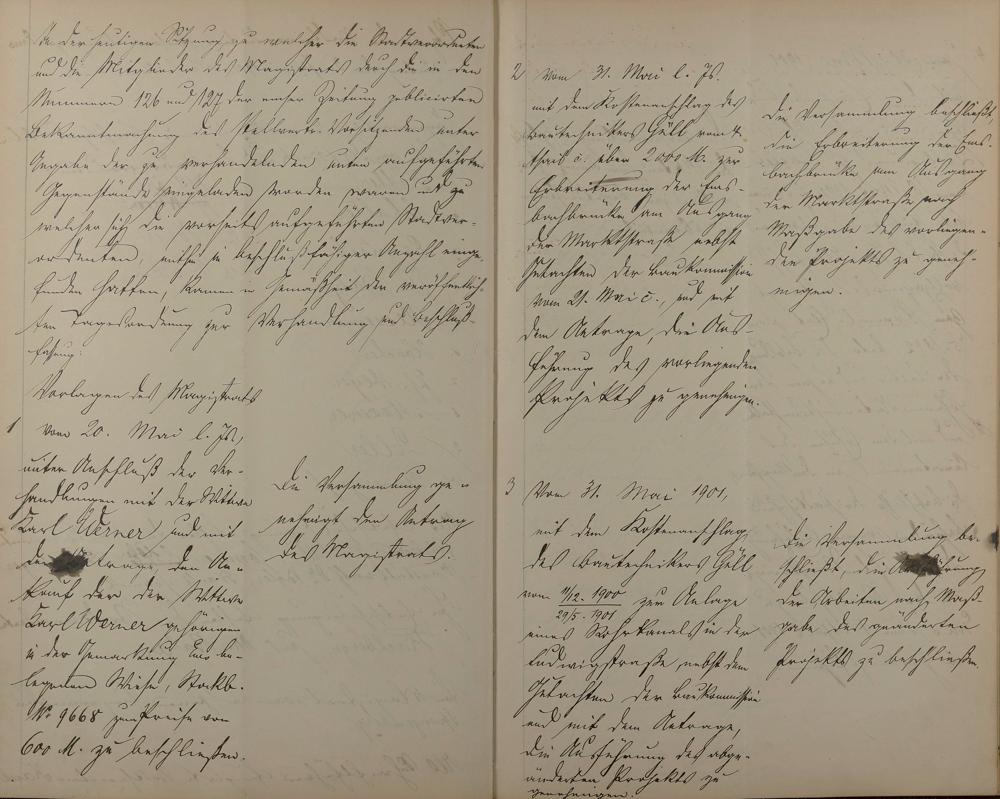 In der heutigen Sitzung zu welcher die Stadtverordneten
und die Mitglieder des Magistrats durch die in den
Nummern 126 und 127 der Emser Zeitung publicirten
Bekanntmachung des stellvertr. Vorsitzenden unter
Angabe der zu verhandelnden unten aufgeführten
Gegenstände eingeladen worden waren und zu
welcher sich die vorseits aufgeführten Stadtver-
ordneten, mithin in beschlußfähiger Anzahl einge-
funden hatten, kamen in Gemäßheit der veröffentlich-
ten Tagesordnung zur Verhandlung und Beschluß-
fassung:
Vorlagen des Magistrats
1 vom 20. Mai l. Js,
unter Anschluß der Ver-
handlungen mit der Wittwe
Karl Werner und mit
dem Antrage, den An-
kauf der der Wittwe
Karl Werner gehörigen
in der Gemarkung Ems be-
legenen Wiese, Stockb.
No 9668 zum Preise von
600 M. zu beschließen.
Die Versammlung ge-
nehmigt den Antrag
des Magistrats.
2 Vom 31. Mai l. Js.
mit dem Kostenanschlag des
Bautechnikers Göll vom
über 2000 M. zur
Erbreiterung der Ems-
bachbrücke am Ausgang
der Marktstraße nebst
Gutachten der Baukommission
vom 21. Mai c., und mit
dem Antrage, die Aus-
führung des vorliegenden
Projekts zu genehmigen.
Die Versammlung beschließt
die Erbreiterung der Ems-
bachbrücke am Ausgang
der Marktstraße nach
Maßgabe des vorliegen-
den Projekts zu geneh-
migen.
3 Vom 31. Mai 1901,
mit dem Kostenanschlag
des Bautechnikers Göll
vom 11/12. 1900
29/5. 1901 zur Anlage
eines Rohrkanals in der
Ludwigstraße, nebst dem
Gutachten der Baukommission
und mit dem Antrage,
die Ausführung des abge-
änderten Projekts zu
genehmigen.
Die Versammlung be-
schließt, die Ausführung
der Arbeiten nach Maß-
gabe des geänderten
Projekts zu beschließen.